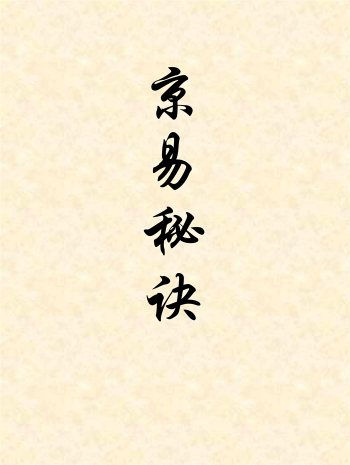 京易秘诀